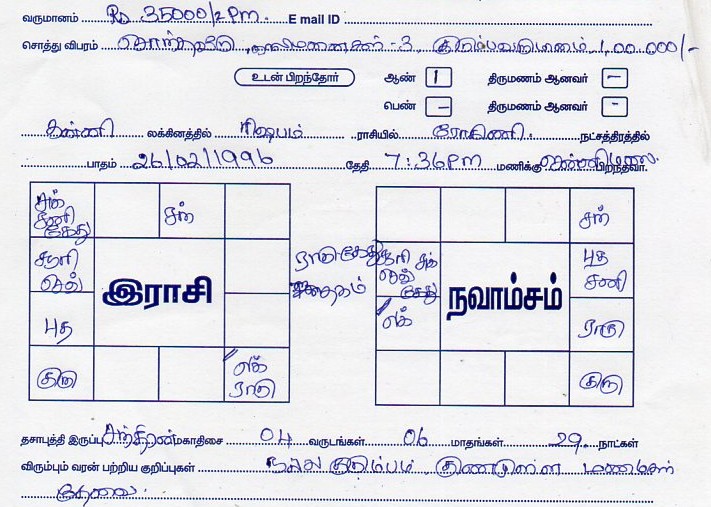 வருமானம் Rs 35000/2 Pm. E mail ID
சொத்து விபரம் சொந்தவீடு, காலிமனைகள் - 3 குடும்பவருமானம் 1,00,000/-
உடன் பிறந்தோர் ஆண் 1 திருமணம் ஆனவர் -
பெண் - திருமணம் ஆனவர் -
கன்னி லக்கினத்தில் ரிஷபம் ராசியில் ரோகிணி நட்சத்திரத்தில்
பாதம் 26/02/1996 தேதி 7:36 PM மணிக்கு சென்னிமலை பிறந்தவர்.
சுக் சனி கேது
சந்
சூரி செவ்
இராசி
புத
குரு
லக் ராகு
ராகு கேது ஜாதகம்
சந்
சூரி சுக் செவ் கேது
நவாம்சம்
புத சனி
லக்
ராகு
குரு
தசாபுத்தி இருப்பு சந்திரன் மகாதிசை 04 வருடங்கள் 06 மாதங்கள் 29 நாட்கள்
விரும்பும் வரன் பற்றிய குறிப்புகள் நல்ல குடும்பம் குணமுள்ள மணமகள்
தேவை.